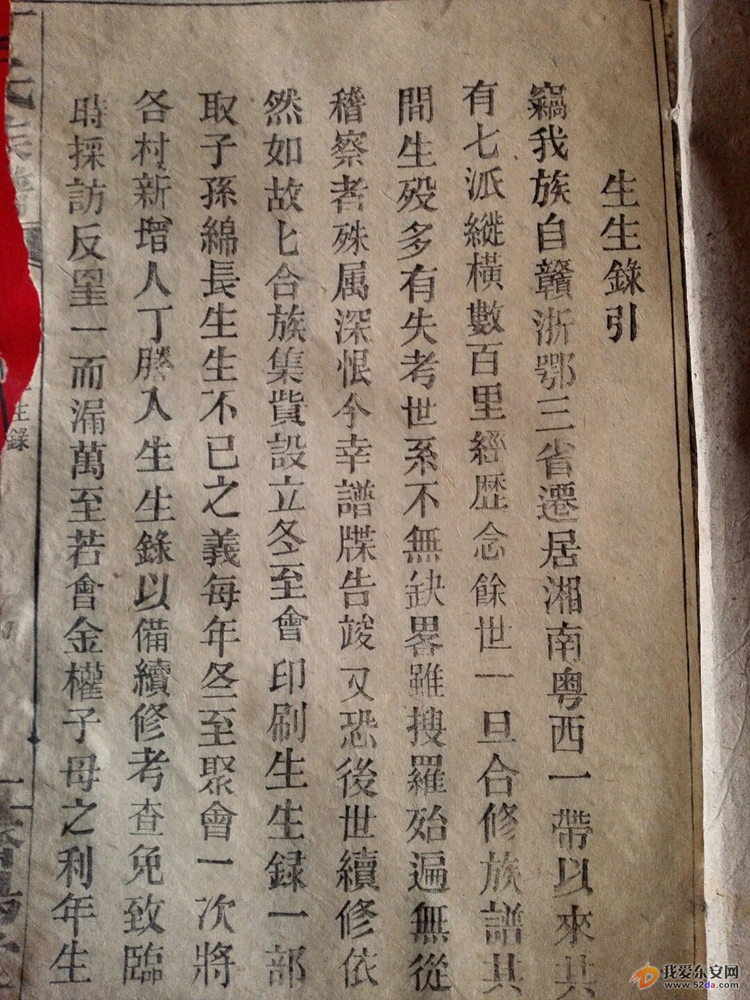 生生錄引
竊我族自贛浙鄂三省遷居湘南粤西一帶以來共
有七派縱橫數百里經歷念餘世一旦合修族譜其
間生殁多有失考世系不無缺畧雖搜羅始遍無從
稽察者殊属深恨今幸譜牒告竣又恐後世續修依
然如故匕合族集貲設立冬至會印刷生生録一部
取子孫綿長生生不已之義每年冬至聚會一次將
各村新增人丁謄入生生錄以備續修考查免致臨
時採訪反星一而漏萬至若會金權子母之利年生
生錄
我爱东安网
www.52da.com